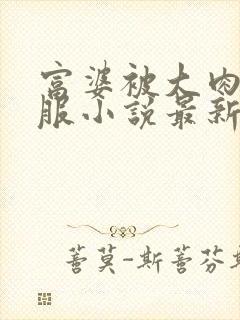 富婆被大肉
服小说最新
蔷莫-斯蔷芬